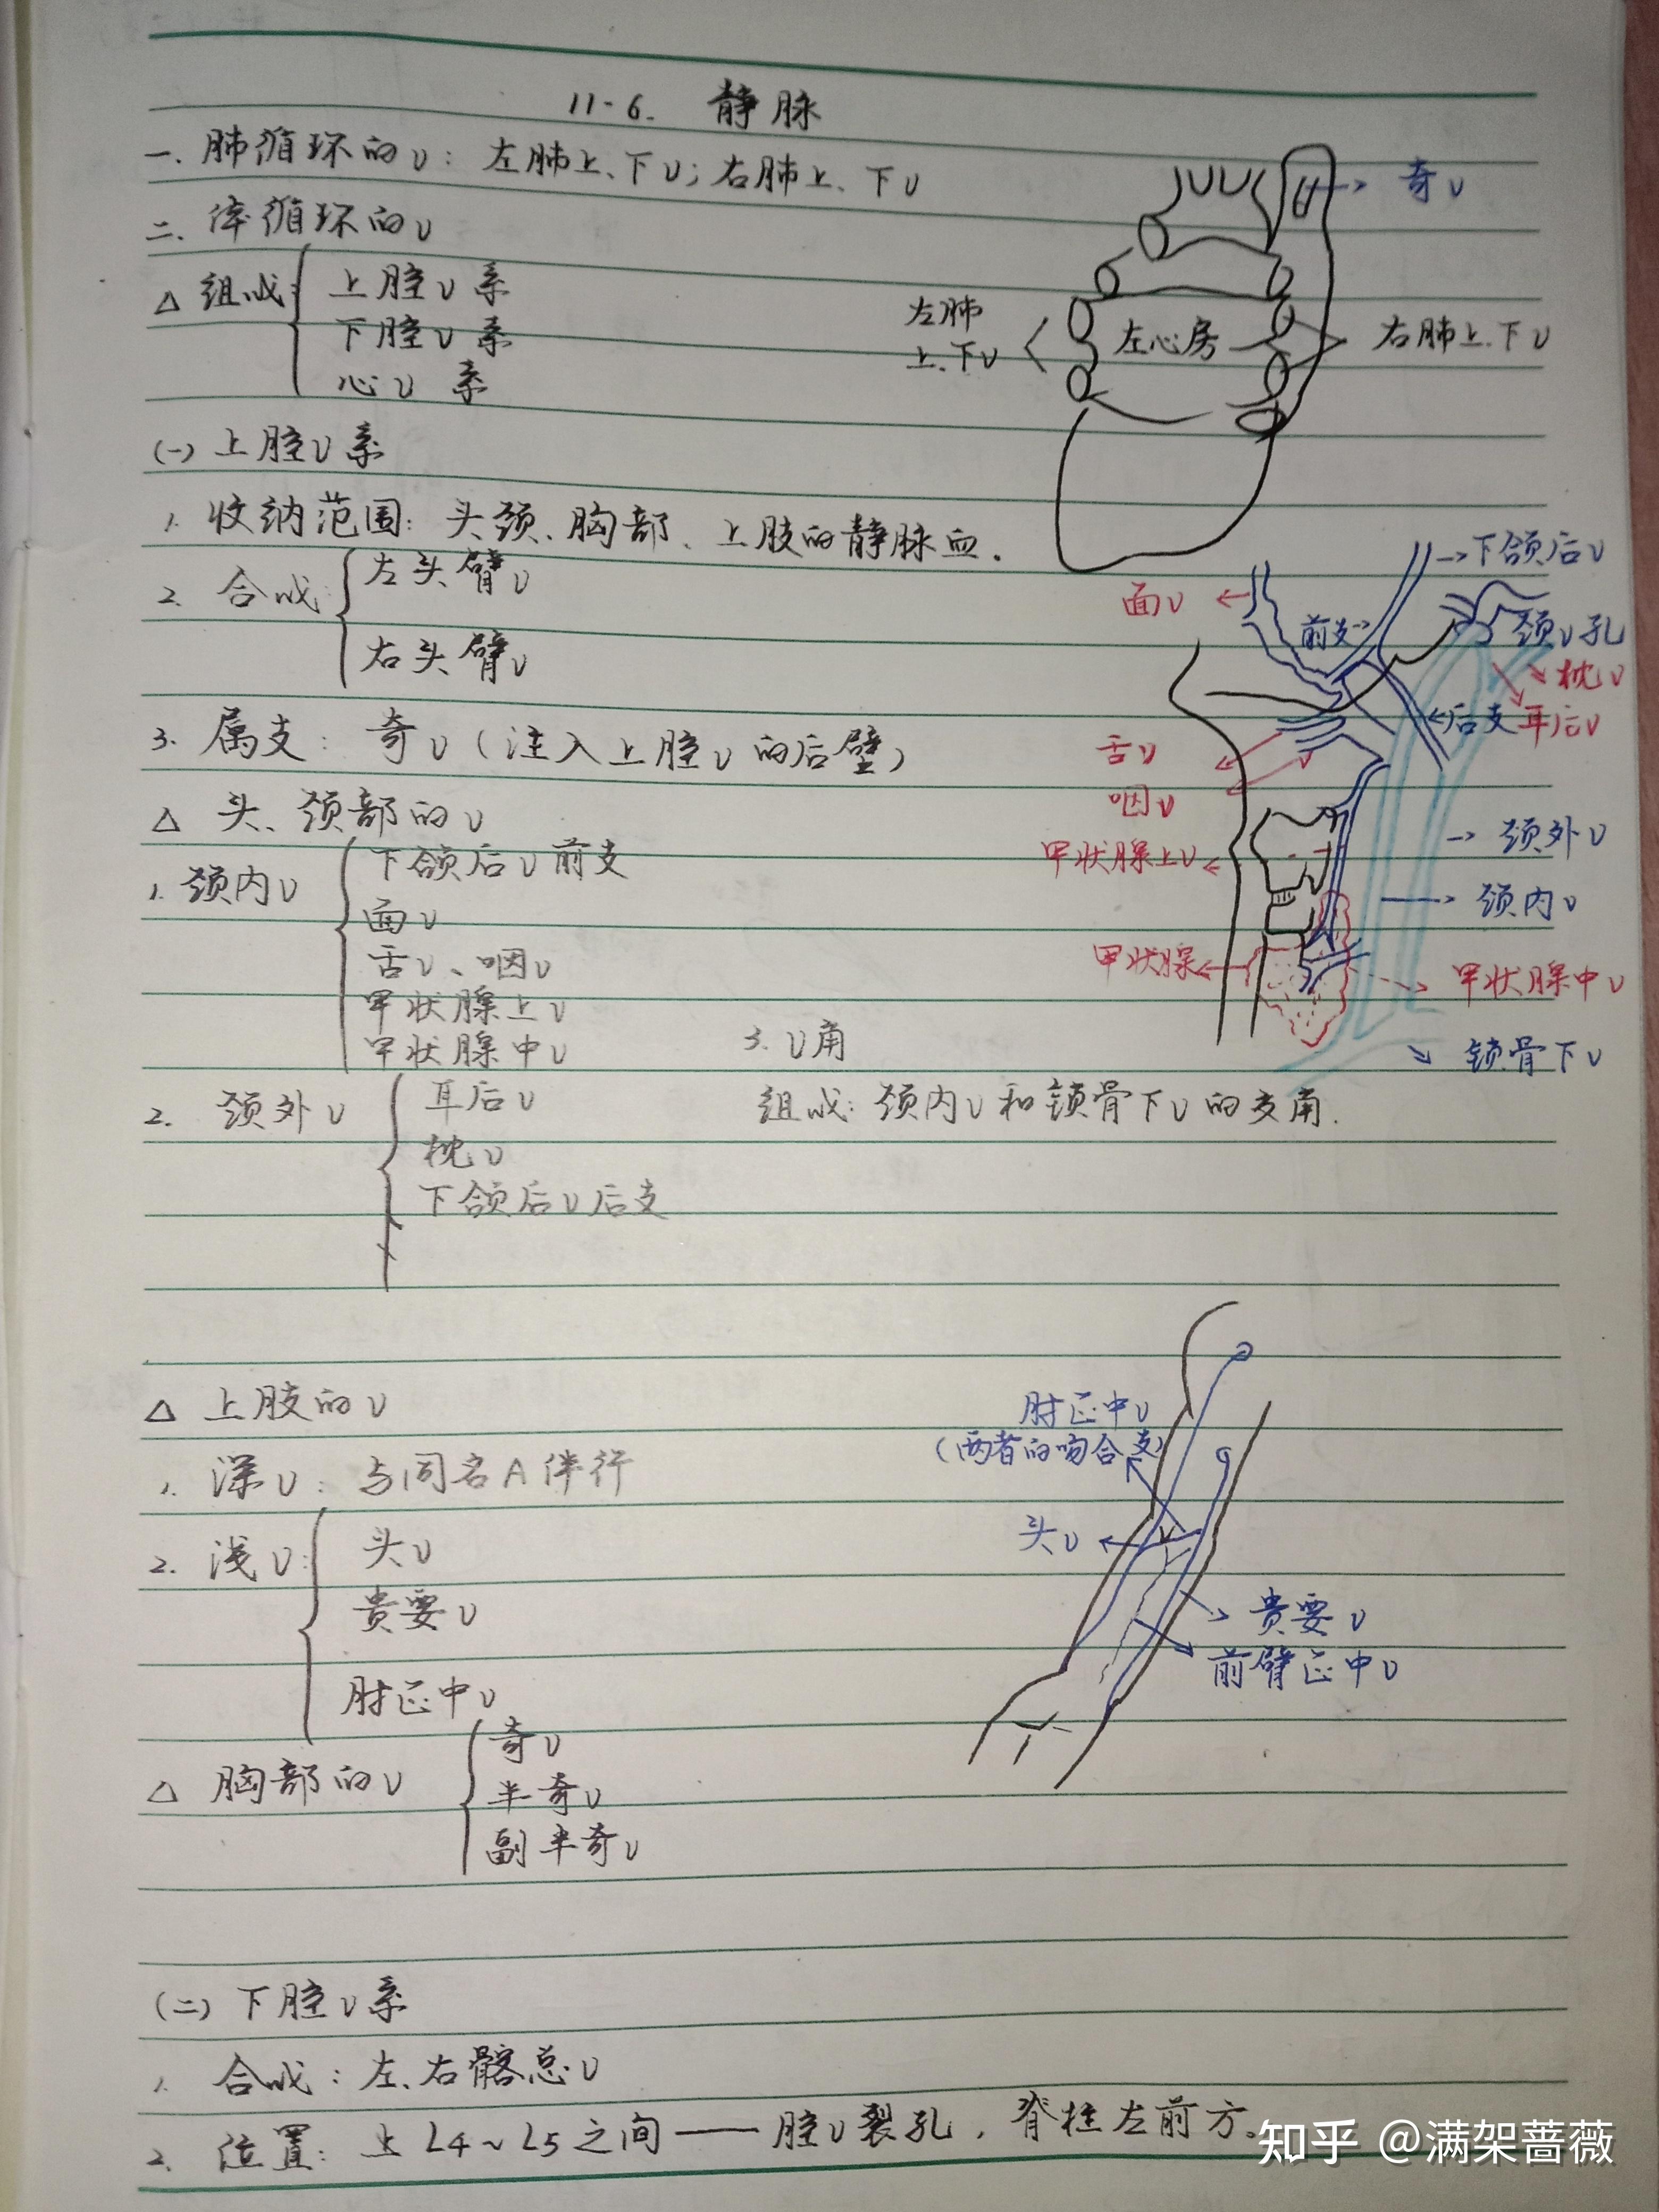 11-6. 静脉
一. 肺循环的v: 左肺上、下v; 右肺上、下v
二. 体循环的v
△ 组成
上腔v系
下腔v系
心v系
(一) 上腔v系
1. 收纳范围: 头颈、胸部、上肢的静脉血.
2. 合成:
左头臂v
右头臂v
3. 属支: 奇v (注入上腔v的后壁)
△ 头、颈部的v
1. 颈内v
下颌后v前支
面v
舌v、咽v
甲状腺上v
甲状腺中v
2. 颈外v
耳后v
枕v
下颌后v后支
3. v角
组成: 颈内v和锁骨下v的交角.
△ 上肢的v
1. 深v: 与同名A伴行
2. 浅v:
头v
贵要v
肘正中v
△ 胸部的v
奇v
半奇v
副半奇v
(二) 下腔v系
1. 合成: 左、右髂总v
2. 位置: 上L4~L5之间——腔v裂孔, 脊柱左前方。
奇v
左肺
上.下v
左心房
右肺上.下v
下颌后v
面v
前支
颈v孔
枕v
后支
耳后v
舌v
咽v
颈外v
甲状腺上v
颈内v
甲状腺
甲状腺中v
锁骨下v
肘正中v
(两者的吻合支)
头v
贵要v
前臂正中v
知乎 @满架蔷薇